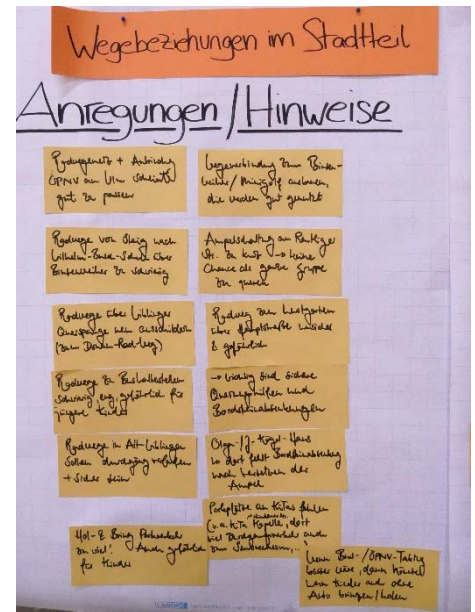 Wegebeziehungen im Stadtteil
Anregungen/Hinweise
Radwegenetz + Anbindung
ÖPNV an Ulm scheint
gut zu passen
Radwege von Steig nach
Wilhelm-Busch-Schule über
Binsenweiher zu schwierig
Radwege über Wiblinger
Querspange
(zum Donau-Rad-weg)
Radwege zu Bushaltestellen
schwierig, eng, gefährlich für
jüngere Kinder
Radwege in Alt-Wiblingen
sollen durchgängig
+ sicher sein
Hol- & Bring Parkverkehr
zu viel! Auch gefährlich
für Kinder
Wegeverbindung zum Binsen-
weiher/Minigolf ausbauen,
die werden gut genutzt
Ampelschaltung am
Str. zu kurz → keine
Chance als ganze Gruppe
zu queren
Radweg zum
über Hauptstraße
& gefährlich
→ wichtig sind sichere
Querungshilfen und
Bordsteinabsenkungen
-Haus
→ dort fehlt Bordsteinabsenkung
nach der
Ampel
Parkplätze an Kitas fehlen
(v.a. Kita Kapelle, dort
viel auch
zum
wenn Bus-/ÖPNV-Taktung
besser wäre, dann könnte
man Kinder auch ohne
Auto bringen/holen